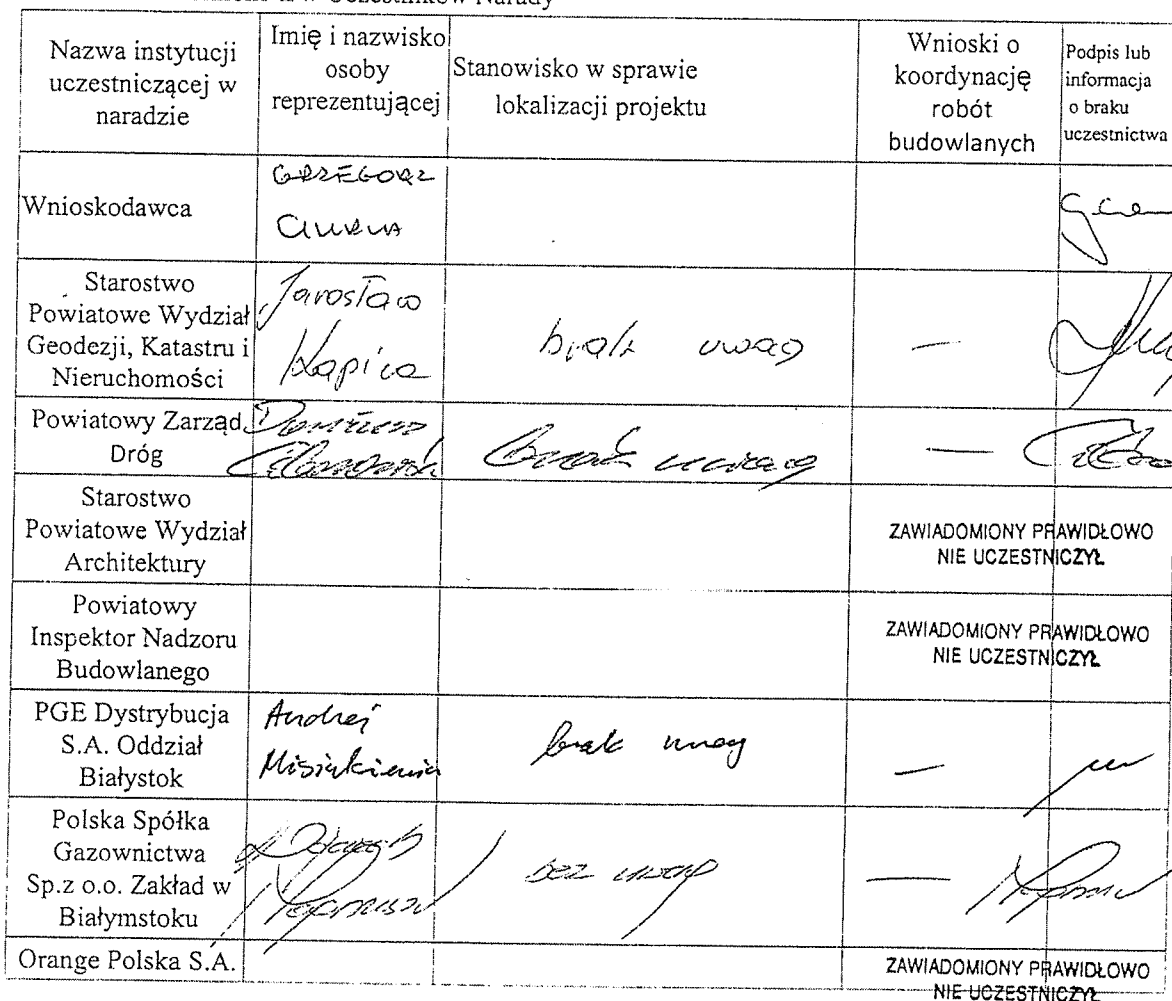 Uczestników Narady
Nazwa instytucji
uczestniczącej w
naradzie
Imię i nazwisko
osoby
reprezentującej
Stanowisko w sprawie
lokalizacji projektu
Wnioski o
koordynację
robót
budowlanych
Podpis lub
informacja
o braku
uczestnictwa
Wnioskodawca
GRZEGORZ
Starostwo
Powiatowe Wydział
Geodezji, Katastru i
Nieruchomości
Jarosław
Kapica
brak uwag
—
Powiatowy Zarząd
Dróg
brak uwag
—
Starostwo
Powiatowe Wydział
Architektury
ZAWIADOMIONY PRAWIDŁOWO
NIE UCZESTNICZYŁ
Powiatowy
Inspektor Nadzoru
Budowlanego
ZAWIADOMIONY PRAWIDŁOWO
NIE UCZESTNICZYŁ
PGE Dystrybucja
S.A. Oddział
Białystok
Andrzej
brak uwag
—
Polska Spółka
Gazownictwa
Sp.z o.o. Zakład w
Białymstoku
bez uwag
—
Orange Polska S.A.
ZAWIADOMIONY PRAWIDŁOWO
NIE UCZESTNICZYŁ